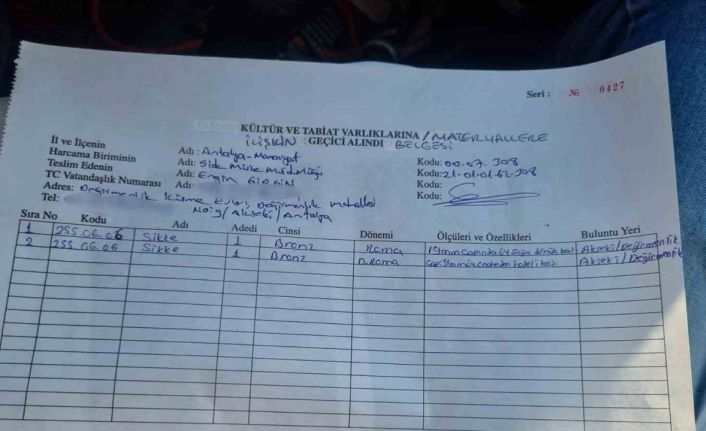 Seri : № 0427
KÜLTÜR VE TABİAT VARLIKLARINA / MATERYALLERE
İLİŞKİN GEÇİCİ ALINDI BELGESİ
İl ve İlçenin Adı: Antalya-Manavgat Kodu: 00.07. 308
Harcama Biriminin Adı: Side Müze Müdürlüğü Kodu: 21.01.01.62.308
Teslim Edenin Adı: Kodu:
TC Vatandaşlık Numarası Adı: Kodu:
Adres: Değirmenlik Küme Evler, Değirmenlik mahallesi
Tel: No:9/Akseki/Antalya
Sıra No Kodu Adı Adedi Cinsi Dönemi Ölçüleri ve Özellikleri Buluntu Yeri
1 255.06.06 Sikke 1 Bronz Roma Akseki/Değirmenlik
2 255.06.06 Sikke 1 Bronz D.Roma Akseki/Değirmenlik